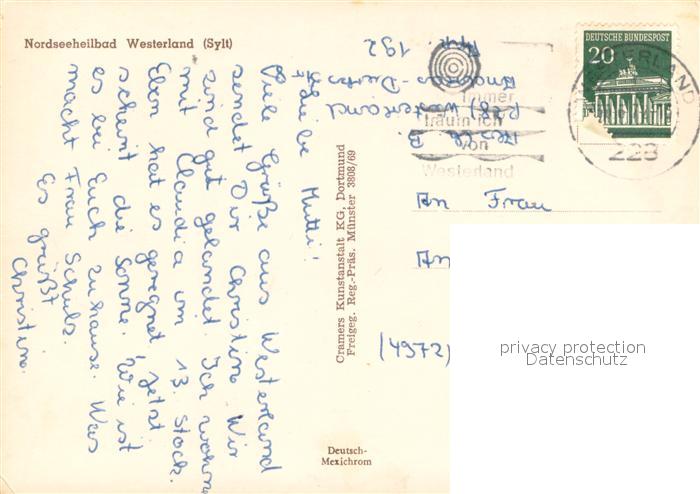 Nordseeheilbad Westerland (Sylt)
Liebe Mutti!
Viele Grüße aus Westerland
sendet Dir Christine. Wir
sind gut gelandet. Ich wohne
mit Claudia im 13. Stock.
Eben hat es geregnet, jetzt
scheint die Sonne. Wie ist
es bei Euch zuhause. Was
macht Frau Schulz.
Es grüßt
Christine.
Cramers Kunstanstalt KG, Dortmund
Freigeg. Reg.-Präs. Münster 3808/69
Deutsch-
Mexichrom
DEUTSCHE BUNDESPOST
20
WESTERLAND
228
Immer
träum ich
von
Westerland
2280 Westerland
App. 192
An Frau
An
(4972)
privacy protection
Datenschutz